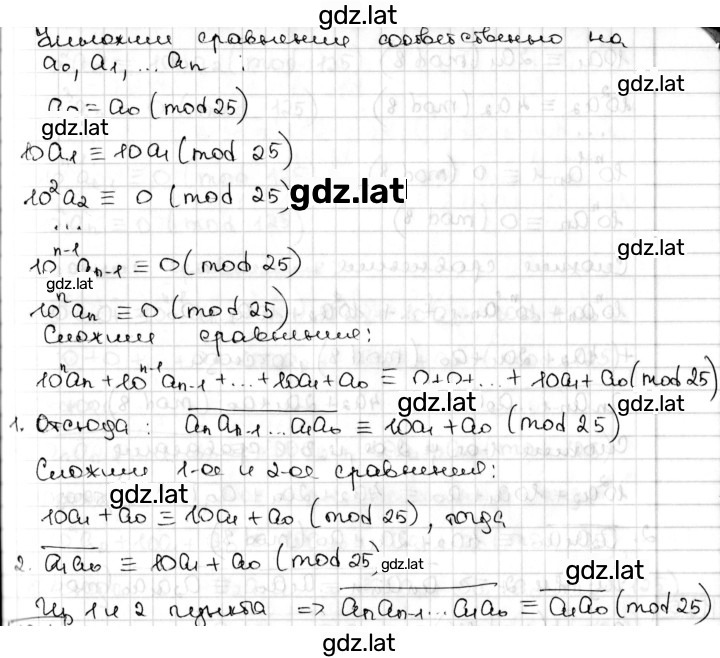 gdz.lat
Умножим сравнение соответственно на
a₀, a₁, ... aₙ :
gdz.lat
= a₀ (mod 25)
gdz.lat
10a₁ ≡ 10a₁ (mod 25)
10²a₂ ≡ 0 (mod 25) gdz.lat
...
gdz.lat
10ⁿ⁻¹ aₙ₋₁ ≡ 0 (mod 25)
gdz.lat
10ⁿaₙ ≡ 0 (mod 25)
Сложим сравнение:
10ⁿaₙ + 10ⁿ⁻¹aₙ₋₁ + ... + 10a₁ + a₀ ≡ 0+0+... + 10a₁ + a₀ (mod 25)
gdz.lat gdz.lat
1. Отсюда : a̅ₙa̅ₙ₋₁...a̅₁a̅₀ ≡ 10a₁ + a₀ (mod 25)
Сложим 1-ое и 2-ое сравнения:
gdz.lat
10a₁ + a₀ ≡ 10a₁ + a₀ (mod 25), тогда
2. a̅₁a̅₀ ≡ 10a₁ + a₀ (mod 25) gdz.lat
gdz.lat
Из 1 и 2 пункта => a̅ₙa̅ₙ₋₁...a̅₁a̅₀ ≡ a̅₁a̅₀ (mod 25)
gdz.lat